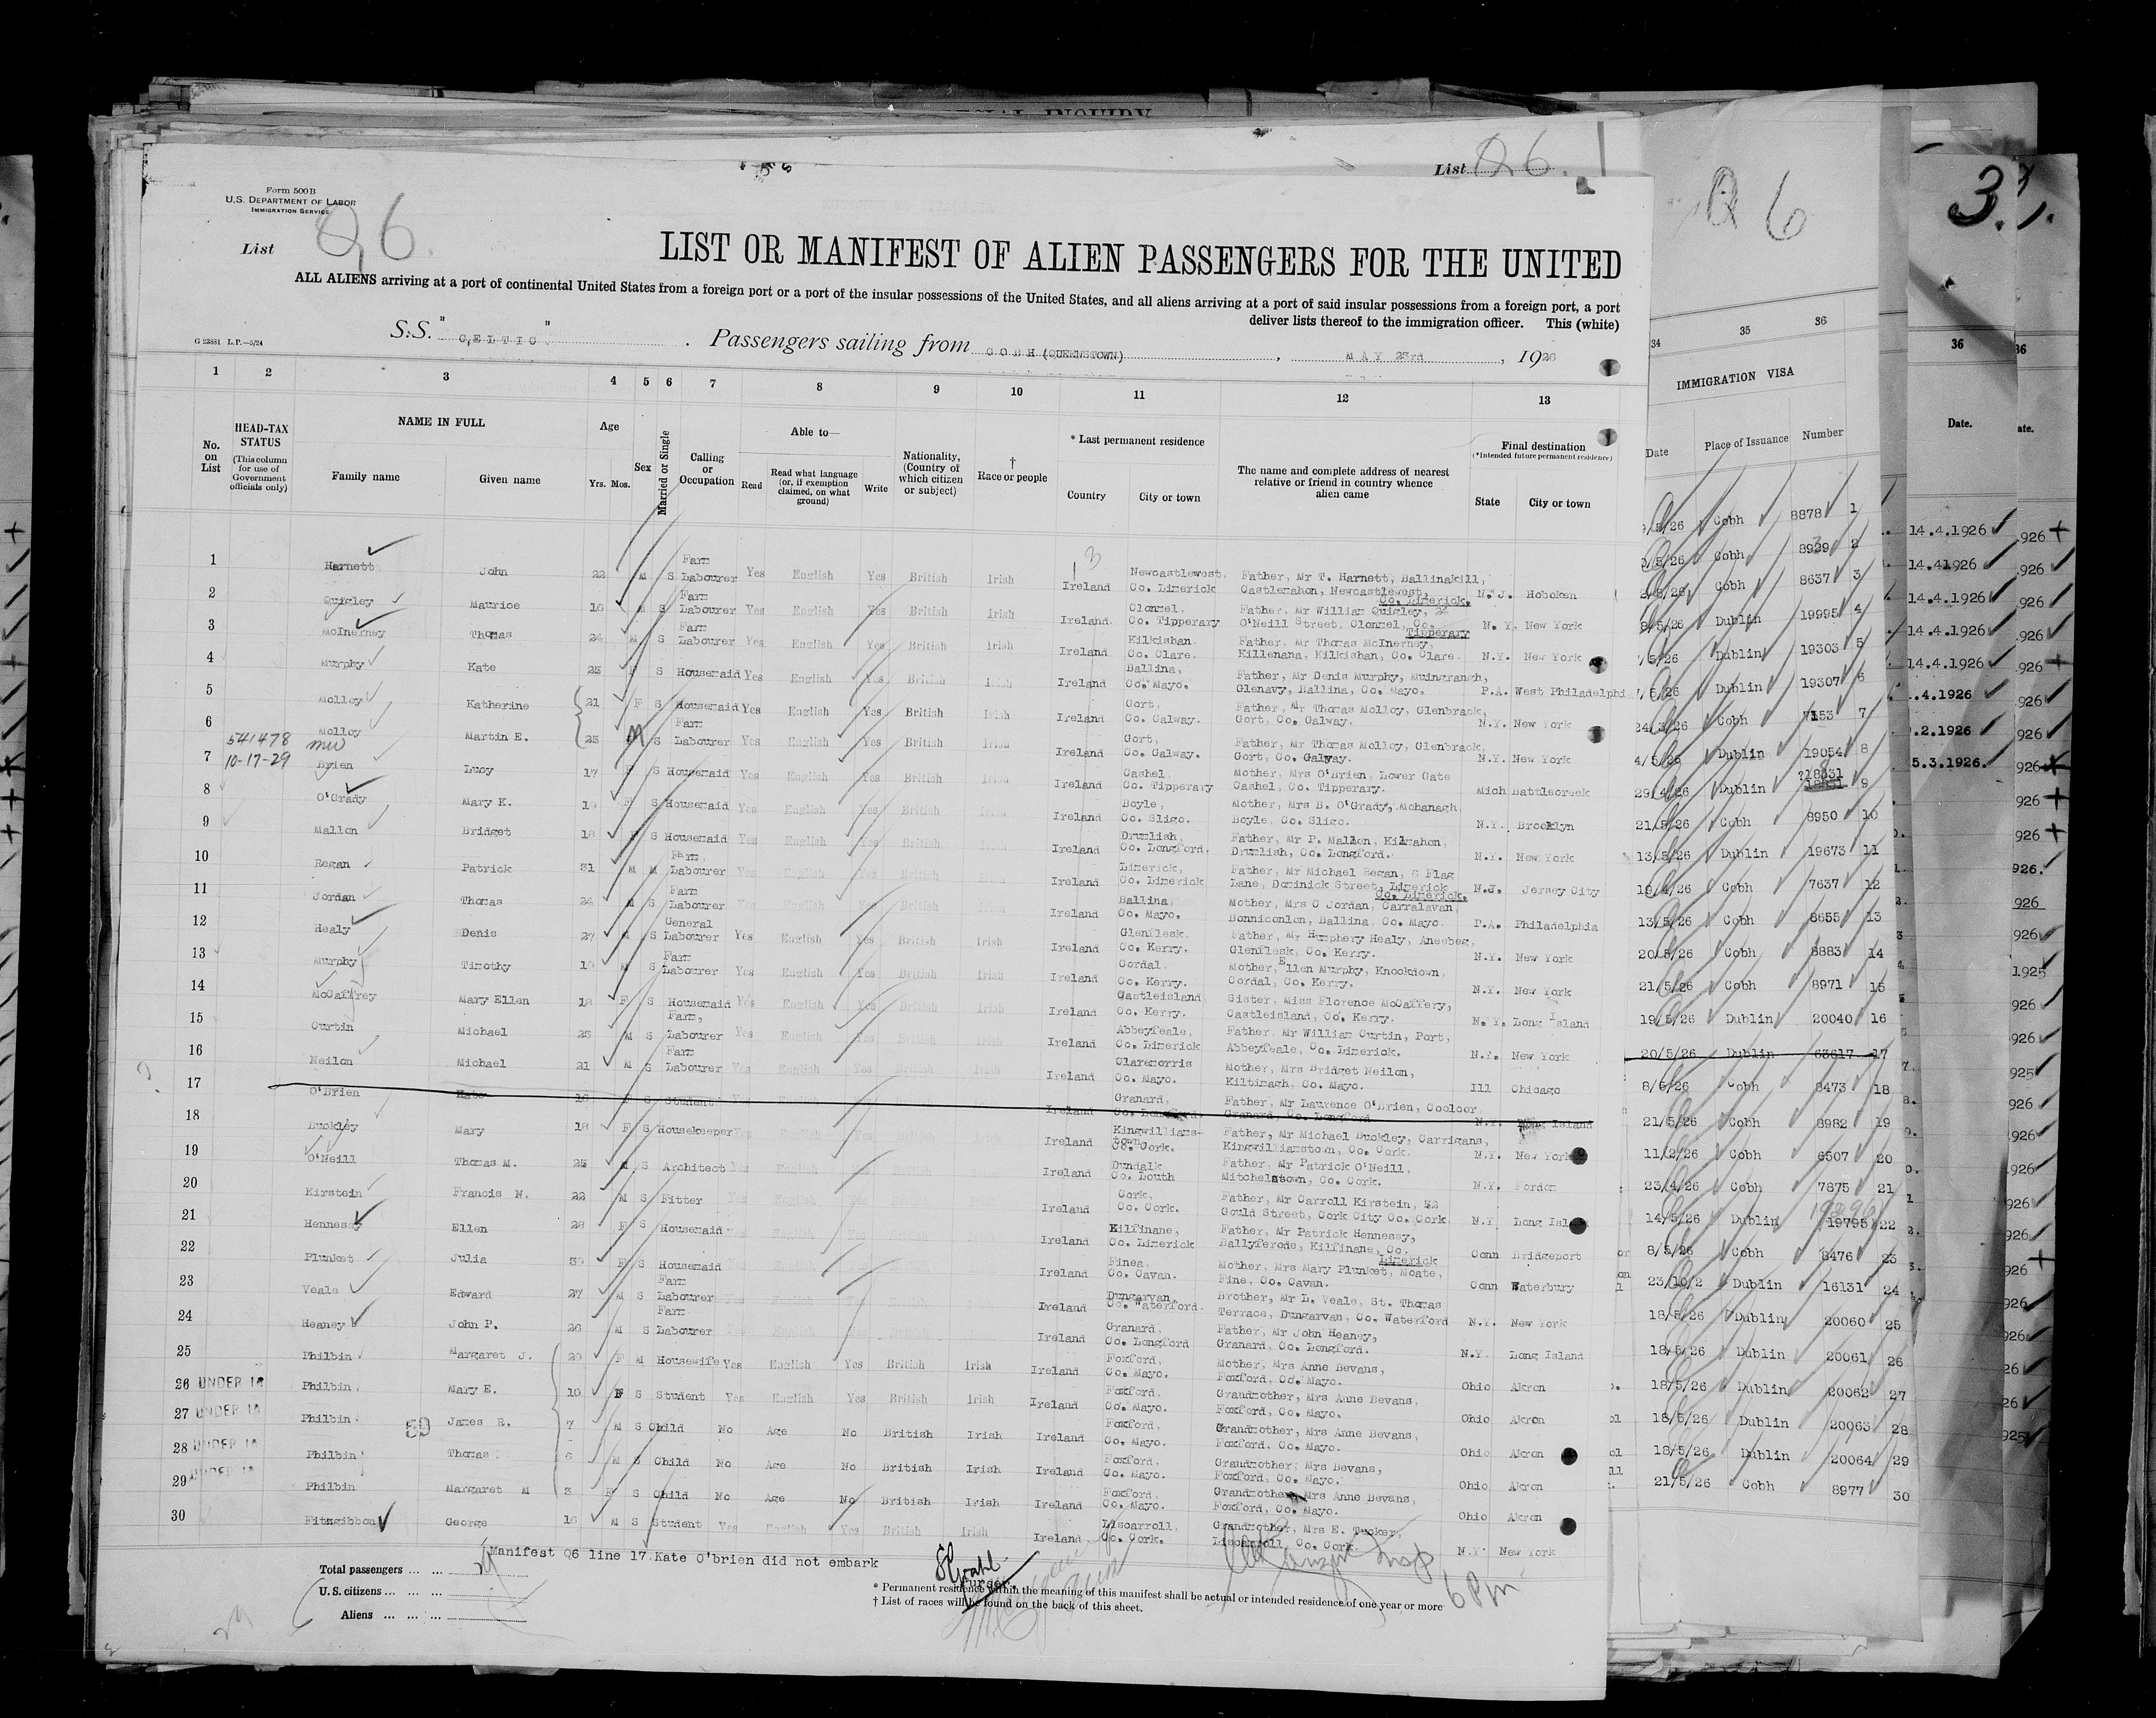 List Q6.
Form 500 B
U.S. DEPARTMENT OF LABOR
IMMIGRATION SERVICE
List Q6.
LIST OR MANIFEST OF ALIEN PASSENGERS FOR THE UNITED
ALL ALIENS arriving at a port of continental United States from a foreign port or a port of the insular possessions of the United States, and all aliens arriving at a port of said insular possessions from a foreign port, a port
deliver lists thereof to the immigration officer. This (white)
G 23881 L.P.—5/24
S.S. "CELTIC". Passengers sailing from COBH (QUEENSTOWN), MAY 23rd, 1926
1 2 3 4 5 6 7 8 9 10 11 12 13
No. on List
HEAD-TAX STATUS (This column for use of Government officials only)
NAME IN FULL
Family name Given name
Age Yrs. Mos.
Sex
Married or Single
Calling or Occupation
Able to—
Read Read what language (or, if exemption claimed, on what ground) Write
Nationality, (Country of which citizen or subject)
† Race or people
* Last permanent residence
Country City or town
The name and complete address of nearest relative or friend in country whence alien came
Final destination (*Intended future permanent residence)
State City or town
1 Harnett John 22 M S Farm Labourer Yes English Yes British Irish Ireland Newcastlewest, Co. Limerick Father, Mr T. Harnett, Ballinakill, Castlemahon, Newcastlewest, Co. Limerick. N.J. Hoboken
2 Quigley Maurice 16 M S Farm Labourer Yes English Yes British Irish Ireland Clonmel, Co. Tipperary Father, Mr William Quigley, 24 O'Neill Street, Clonmel, Co. Tipperary N.Y. New York
3 McInerney Thomas 24 M S Farm Labourer Yes English Yes British Irish Ireland Kilkishan, Co. Clare. Father, Mr Thomas McInerney, Killenana, Kilkishan, Co. Clare. N.Y. New York
4 Murphy Kate 25 F S Housemaid Yes English Yes British Irish Ireland Ballina, Co. Mayo. Father, Mr Denis Murphy, Muingrangh, Glenavy, Ballina, Co. Mayo. P.A. West Philadelphi
5 Molloy Katherine 21 F S Housemaid Yes English Yes British Irish Ireland Gort, Co. Galway. Father, Mr Thomas Molloy, Glenbrack, Gort, Co. Galway. N.Y. New York
6 Molloy Martin E. 25 M S Farm Labourer Yes English Yes British Irish Ireland Gort, Co. Galway. Father, Mr Thomas Molloy, Glenbrack, Gort, Co. Galway. N.Y. New York
541478
10-17-29
7 Brien Lucy 17 F S Housemaid Yes English Yes British Irish Ireland Cashel, Co. Tipperary Mother, Mrs O'Brien, Lower Gate Cashel, Co. Tipperary. Mich Battlecreek
8 O'Grady Mary K. 19 F S Housemaid Yes English Yes British Irish Ireland Boyle, Co. Sligo. Mother, Mrs B. O'Grady, Mohanagh, Boyle, Co. Sligo. N.Y. Brooklyn
9 Mallon Bridget 18 F S Housemaid Yes English Yes British Irish Ireland Drumlish, Co. Longford. Father, Mr P. Mallon, Kilmahon, Drumlish, Co. Longford. N.Y. New York
10 Regan Patrick 31 M M Farm, Labourer Yes English Yes British Irish Ireland Limerick, Co. Limerick Father, Mr Michael Regan, 6 Flag Lane, Dominick Street, Limerick Co. Limerick. N.J. Jersey City
11 Jordan Thomas 24 M S Farm Labourer Yes English Yes British Irish Ireland Ballina, Co. Mayo. Mother, Mrs C Jordan, Carralavan, Bonniconlon, Ballina, Co. Mayo. P.A. Philadelphia
12 Healy Denis 27 M S General Labourer Yes English Yes British Irish Ireland Glenflesk, Co. Kerry. Father, Mr Humphery Healy, Aneebeg, Glenflesk, Co. Kerry. N.Y. New York
13 Murphy Timothy 19 M S Farm Labourer Yes English Yes British Irish Ireland Cordal, Co. Kerry. Mother, Ellen Murphy, Knockdown, Cordal, Co. Kerry. N.Y. New York
14 McCaffrey Mary Ellen 18 F S Housemaid Yes English Yes British Irish Ireland Castleisland, Co. Kerry. Sister, Miss Florence McCaffery, Castleisland, Co. Kerry. N.Y. Long Island
15 Curtin Michael 25 M S Farm, Labourer Yes English Yes British Irish Ireland Abbeyfeale, Co. Limerick Father, Mr William Curtin, Port, Abbeyfeale, Co. Limerick. N.Y. New York
16 Neilon Michael 21 M S Farm Labourer Yes English Yes British Irish Ireland Claremorris Co. Mayo. Mother, Mrs Bridget Neilon, Kiltimagh, Co. Mayo. Ill Chicago
17 O'Brien Kate 16 F S Student Yes English Yes Ireland Granard, Co. Longford Father, Mr Laurence O'Brien, Cooloor, Granard, Co. Longford N.Y. Long Island
18 Buckley Mary 18 F S Housekeeper Yes English Yes British Irish Ireland Kingwilliamstown, Co. Cork. Father, Mr Michael Buckley, Carrigans, Kingwilliamstown, Co. Cork. N.Y. New York
19 O'Neill Thomas M. 25 M S Architect Yes English Yes Ireland Dundalk Co. Louth Father, Mr Patrick O'Neill, Mitchelstown, Co. Cork. N.Y. Fordon
20 Kirstein Francis N. 22 M S Fitter Yes English Yes Ireland Cork, Co. Cork. Father, Mr Carroll Kirstein, 52 Gould Street, Cork City Co. Cork N.Y. Long Isl
21 Hennessy Ellen 28 F S Housemaid English Yes Ireland Kilfinane, Co. Limerick Father, Mr Patrick Hennessy, Ballyferode, Kilfinane, Co. Limerick Conn Bridgeport
22 Plunket Julia 39 F S Housemaid Yes English Ireland Finea, Co. Cavan. Mother, Mrs Mary Plunket, Moate, Fine, Co. Cavan. Conn Waterbury
23 Veale Edward 27 M S Farm Labourer Yes English Yes Ireland Dungarvan, Co. Waterford. Brother, Mr L. Veale, St. Thomas Terrace, Dungarvan, Co. Waterford N.Y. New York
24 Heaney John P. 26 M S Farm Labourer English Ireland Granard, Co. Longford Father, Mr John Heaney, Granard, Co. Longford. N.Y. Long Island
25 Philbin Margaret J. 29 F M Housewife Yes English Yes British Irish Ireland Foxford, Co. Mayo. Mother, Mrs Anne Bevans, Foxford, Co. Mayo. Ohio Akron
26 UNDER 14 Philbin Mary E. 10 F S Student Yes English Yes British Irish Ireland Foxford, Co. Mayo. Grandmother, Mrs Anne Bevans, Foxford, Co. Mayo. Ohio Akron
27 UNDER 14 Philbin James R. 7 M S Child No Age No British Irish Ireland Foxford, Co. Mayo. Grandmother, Mrs Anne Bevans, Foxford, Co. Mayo. Ohio Akron
28 UNDER 14 Philbin Thomas 6 M S Child No Age No British Irish Ireland Foxford, Co. Mayo. Grandmother, Mrs Bevans, Foxford, Co. Mayo. Ohio Akron
29 UNDER 14 Philbin Margaret M 3 F S Child No Age No British Irish Ireland Foxford, Co. Mayo. Grandmother, Mrs Anne Bevans, Foxford, Co. Mayo. Ohio Akron
30 Fitzgibbon George 16 M S Student Yes English Yes British Irish Ireland Liscarroll, Co. Cork. Grandmother, Mrs E. Tucker, Liscarroll, Co. Cork. N.Y. New York
Manifest Q6 line 17 Kate O'brien did not embark
Purser.
6 Pm
Total passengers ... ...
U.S. citizens ... ... ...
Aliens ... ... ...
* Permanent residence within the meaning of this manifest shall be actual or intended residence of one year or more
† List of races will be found on the back of this sheet.
Q6
34 35 36
IMMIGRATION VISA
Date Place of Issuance Number
/5/26 Cobh 8878 1
/5/26 Cobh 8939 2
Cobh 8637 3
8/5/26 Dublin 19995 4
/5/26 Dublin 19303 5
/5/26 Dublin 19307 6
24/3/26 Cobh 7153 7
4/5/26 Dublin 19054 8
29/4/26 Dublin 18831 9
21/5/26 Cobh 8950 10
13/5/26 Dublin 19673 11
19/4/26 Cobh 7637 12
13/5/26 Cobh 8655 13
20/5/26 Cobh 8883 14
21/5/26 Cobh 8971 15
19/5/26 Dublin 20040 16
20/5/26 Dublin 63617 17
8/5/26 Cobh 8473 18
21/5/26 Cobh 8982 19
11/2/26 Cobh 6507 20
23/4/26 Cobh 7875 21
14/5/26 Dublin 19795 22
8/5/26 Cobh 8476 23
23/10/2 Dublin 16131 24
18/5/26 Dublin 20060 25
18/5/26 Dublin 20061 26
18/5/26 Dublin 20062 27
18/5/26 Dublin 20063 28
18/5/26 Dublin 20064 29
21/5/26 Cobh 8977 30
3.
36
Date.
14.4.1926
14.41926
14.4.1926
14.4.1926
14.4.1926
.4.1926
.2.1926
5.3.1926.
36
ate.
926
926
926
926
926
926
926
926
926
926
926.
926
926
1925
926
926
925
926
926
1926
926
926
926
926
926
926
926
925